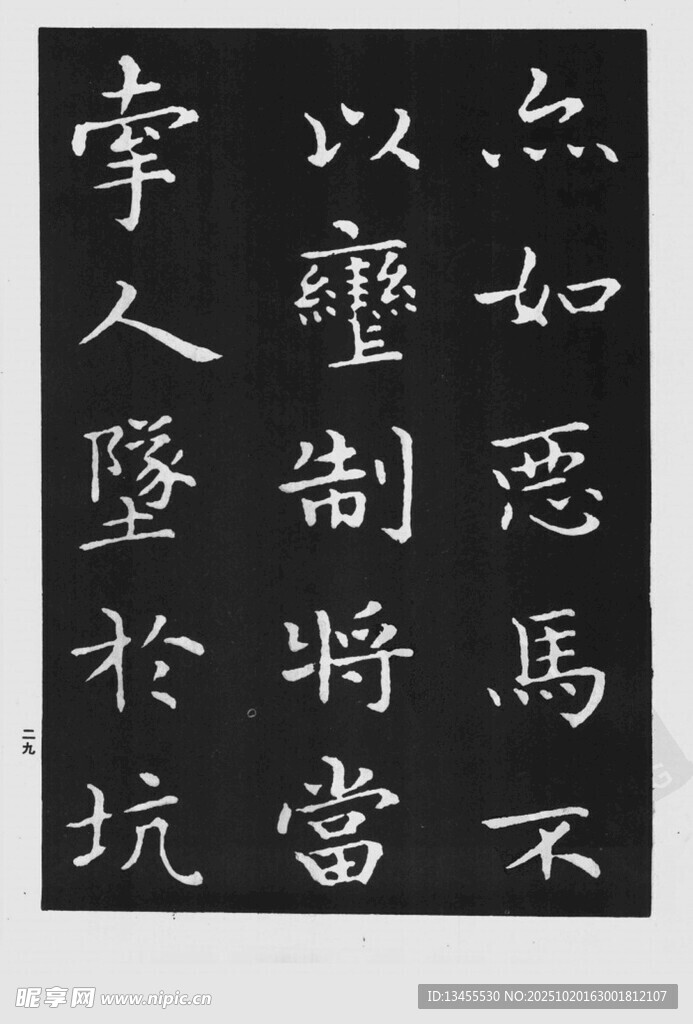 亦如惡馬不
以轡制將當
牽人墜於坑
二九
昵享网 www.nipic.cn
ID:13455530 NO:20251020163001812107